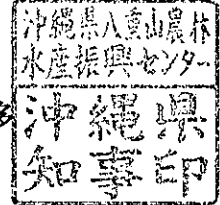 沖縄県八重山農林
水産振興センター
沖縄県
知事印